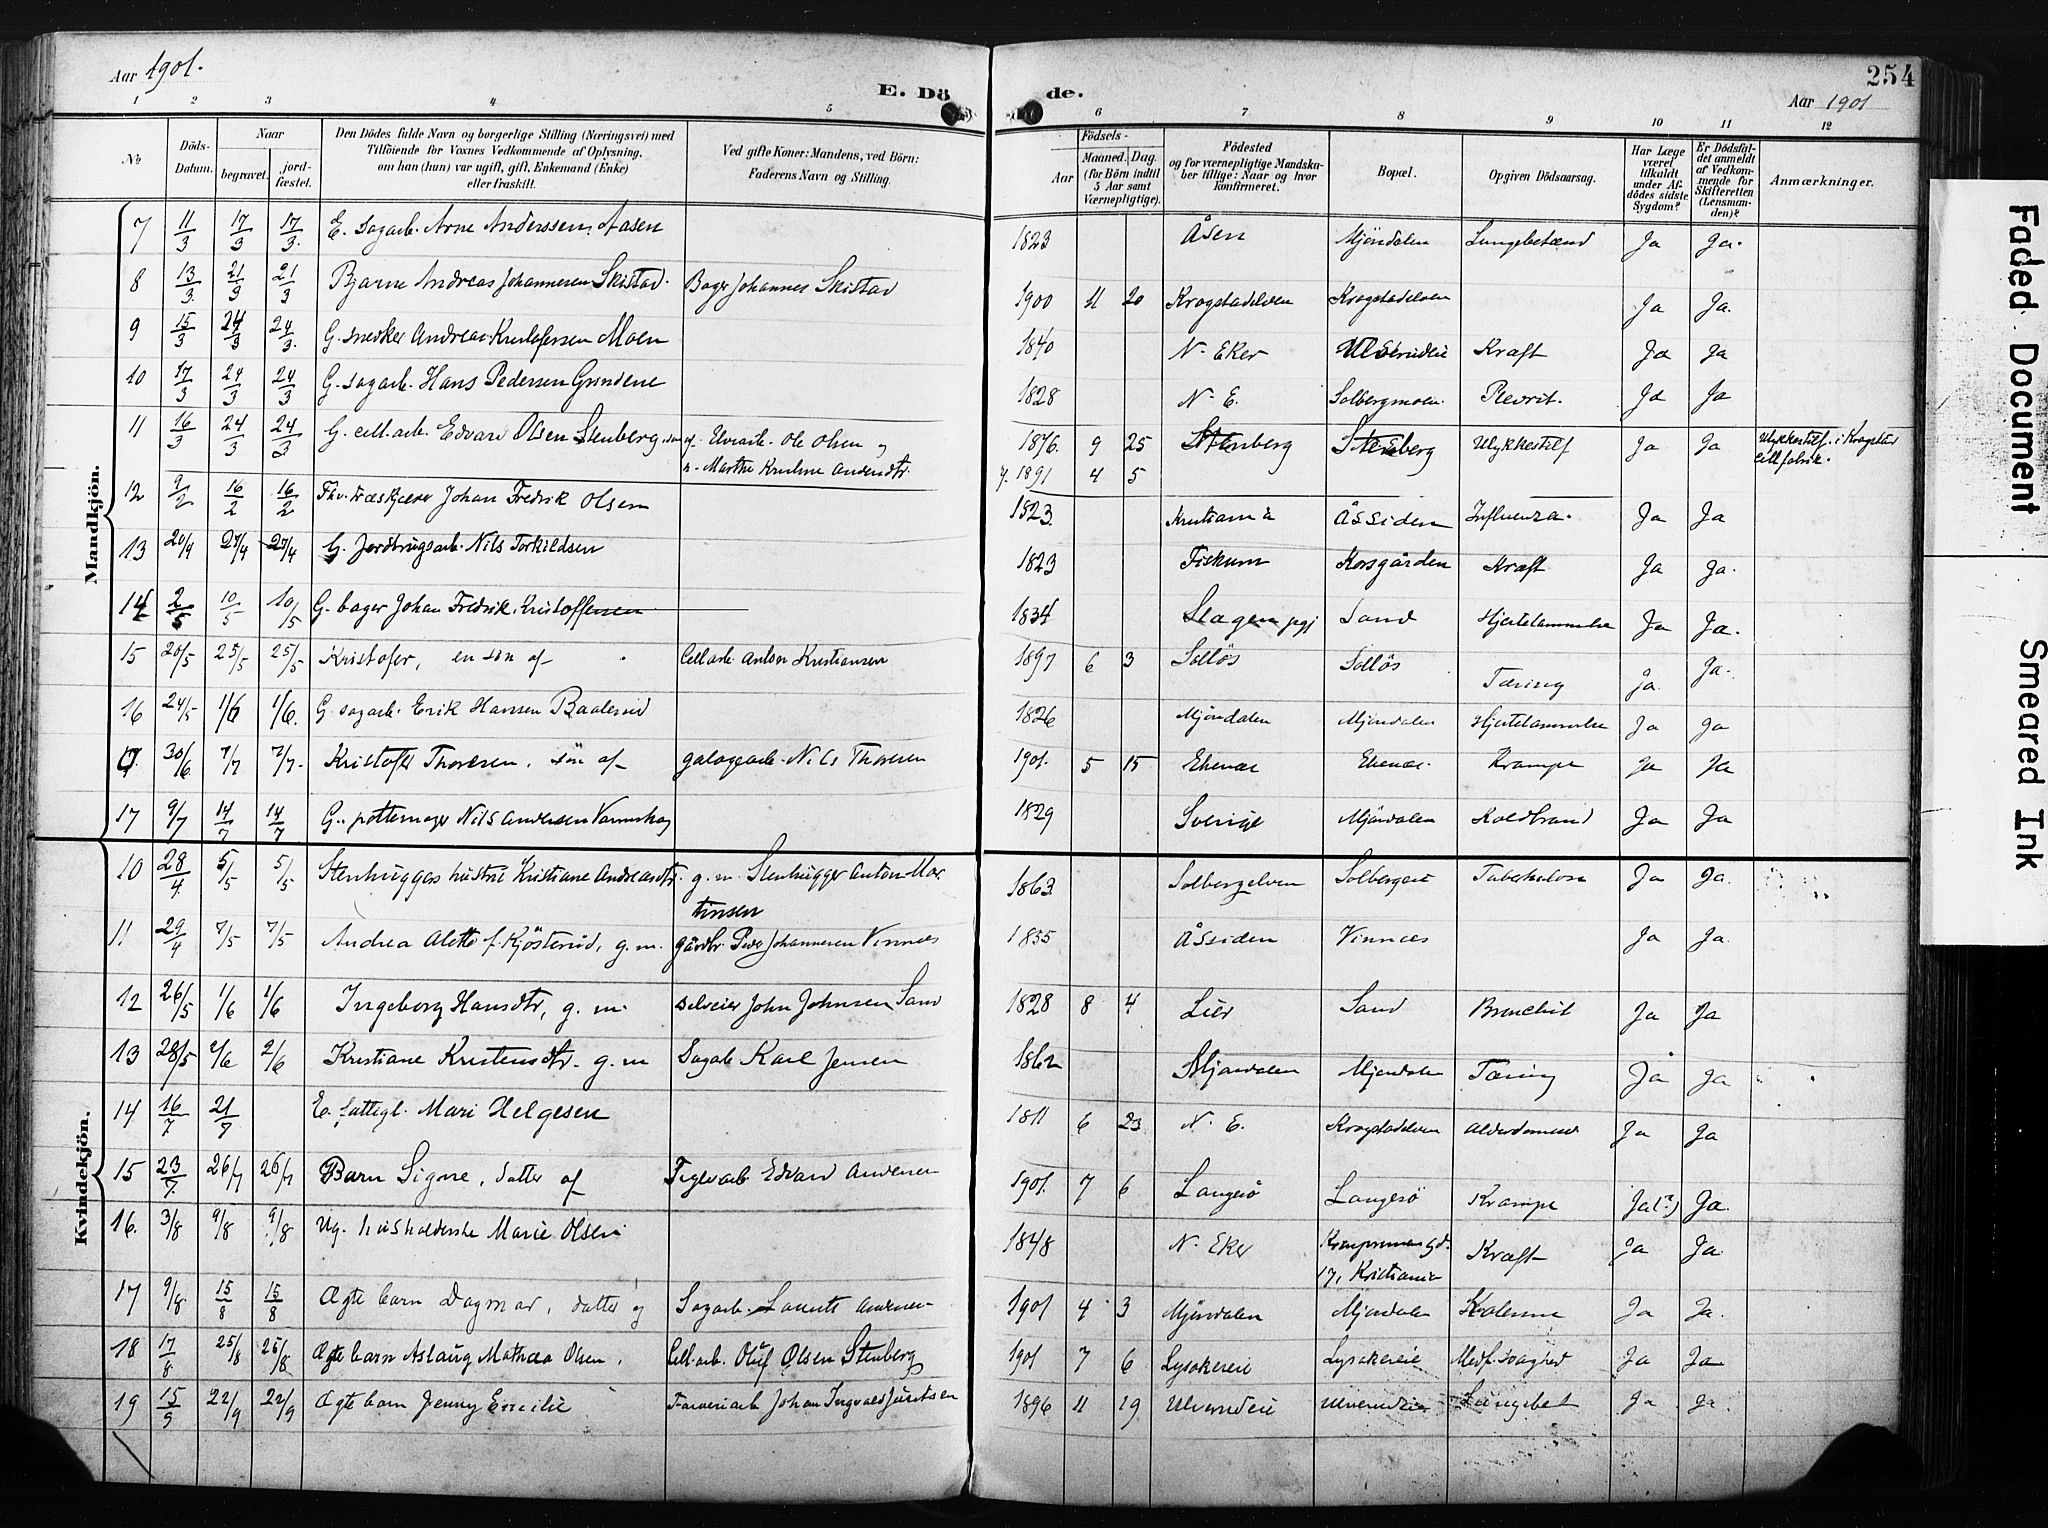 Aar 1901.
E. Dö
de.
254
Aar 1901
1 2 3 4 5 6 7 8 9 10 11 12
No
Döds-Datum.
Naar
begravet.
jordfæstet.
Den Dödes fulde Navn og borgerlige Stilling (Næringsvei) med
Tilföiende for Voxnes Vedkommende af Oplysning,
om han (hun) var ugift, gift, Enkemand (Enke)
eller fraskilt.
Ved gifte Koner: Mandens, ved Börn:
Faderens Navn og Stilling.
Födsels-
Aar
Maaned. Dag.
(for Börn indtil
5 Aar samt
Værnepligtige).
Födested
og for værnepligtige Mandskaber tillige: Naar og hvor
konfirmeret.
Bopæl.
Opgiven Dödsaarsag.
Har Læge
været
tilkaldt
under Afdödes sidste
Sygdom?
Er Dödsfaldet anmeldt
af Vedkommende for
Skifteretten
(Lensmanden)?
Anmærkninger.
Mandkjön.
7 11/3 17/3 17/3. E. sagarb. Arne Anderssen Aasen 1823 Åsen Mjöndalen Lungebetænd Ja Ja.
8 13/3 21/3 21/3 Bjarne Andreas Johannesen Skistad. Bager Johannes Skistad 1900 11 20 Krogstadelven Krogstadelven Ja Ja.
9 15/3 24/3 24/3. G. snedker Andreas Kristofersen Moen 1840 N. Eker Ulverudeie Kræft Ja Ja
10 17/3 24/3 24/3 G. sagarb. Hans Pedersen Grindene 1828 N. E. Solbergmoen. Plevrit. Ja Ja
11 16/3 24/3 24/3 G. cell.arb. Edvard Olsen Stenberg sön af Ole Olsen og
h. Marthe Kristine Andersdtr. 1876. 9 25 Stenberg Stenberg Ulykkestilf Ja Ja Ulykkestilf. i Krogstad
Cell.fabrik.
1891 4 5
12 9/2 16/2 16/2 Fhv. Johan Fredrik Olsen 1823. Kristiania Åssiden Influenza. Ja Ja
13 20/4 27/4 27/4 G. Jordbrugsarb. Nils Torkildsen 1823 Fiskum Korsgården Kræft Ja Ja.
14 2/5 10/5 10/5 G. bager Johan Fredrik Kristoffersen 1834 Slagen pgj Sand Hjertelammelse Ja Ja.
15 20/5 25/5 25/5 Kristofer, en sön af Cell.arb. Anton Kristiansen 1897 6 3 Solløs Solløs Tæring Ja. Ja.
16 24/5 1/6 1/6. G. sagarb. Erik Hansen Baalerud 1826 Mjöndalen Mjöndalen Hjertelammelse Ja Ja
30/6 7/7 7/7. Kristoffer Thoresen, sön af galogearb. Nils Thoresen 1901. 5 15 Ekenæs Ekenæs. Krampe Ja Ja
17 9/7 14/7 14/7 G. pottemager Nils Andersen 1829 Sverige Mjöndalen Koldbrand Ja Ja
Kvindekjön.
10 28/4. 5/5 5/5 Stenhuggers hustru Kristiane Andreasdtr. g. m. Stenhugger Anton Martinsen 1863 Solbergelven Solberg Tuberkulose Ja Ja.
11 29/4 7/5 7/5 Andrea Alette f. Kjösterud, g. m. gårdbr. Peder Johannesen Vinnæs 1855 Åssiden Vinnæs Ja Ja.
12 26/5 1/6 1/6 Ingeborg Hansdtr, g. m. selveier John Johnsen Sand 1828 8 4 Lier Sand Bronchit Ja Ja
13 28/5 2/6 2/6 Kristiane Kristensdtr. g. m Sagarb Karl Jensen 1862 Mjöndalen Mjöndalen Tæring Ja Ja
14 16/7 21/7 E. fattigl. Mari Helgesen 1811 6 23 N. E. Krogstadelven Alderdomssv Ja Ja
15 23/7. 26/7 26/7 Barn Signe, datter af Teglvarb Edvard Andersen 1901. 7 6 Langesö Langesö Krampe Ja(?) Ja.
16. 3/8 9/8 9/8 Ug. husholderske Marie Olsen 1848 N. Eker
17, Kristiania Kræft Ja Ja.
17 9/8 15/8 15/8 Ægte barn Dagmar, datter af Sagarb. Laurits Andersen 1901 4 3 Mjöndalen Mjöndalen Kolerine Ja Ja.
18 17/8 25/8 25/8 Ægte barn Aslaug Mathea Olsen, Cell.arb. Oluf Olsen Stenberg 1901 7 6 Lysakereie Lysakereie Medf. svaghed Ja Ja
19 15/9 22/9 22/9 Ægte barn Jenny Emilie Farveriarb Johan Ingvald Juritsen 1896 11 19 Ulverudeie Ulverudeie Lungebet Ja Ja.
Faded Document
Smeared Ink